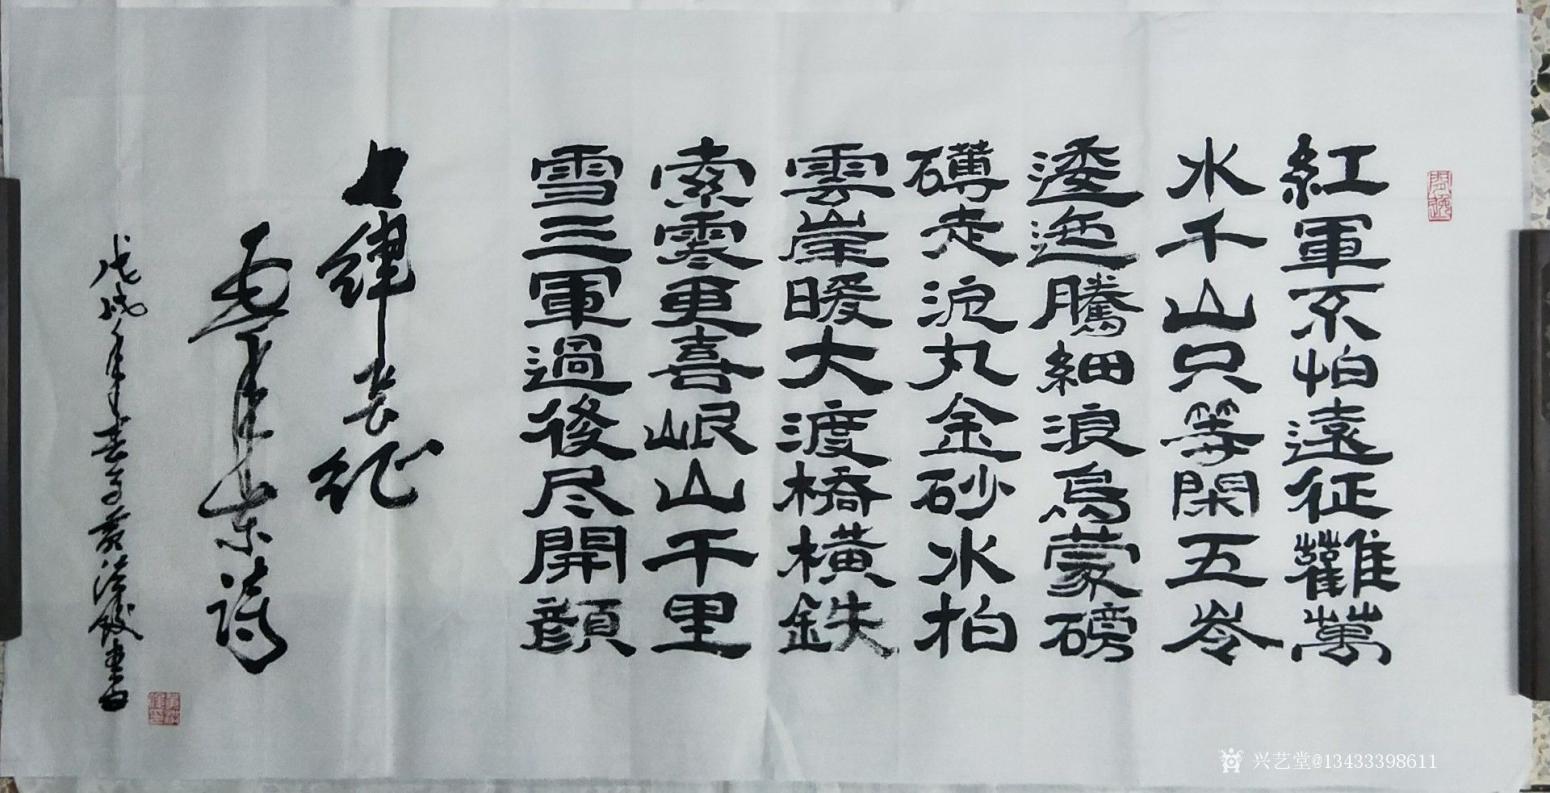 紅軍不怕遠征難萬
水千山只等閑五岺
逶迤騰細浪烏蒙磅
礴走泥丸金砂水拍
雲崖暖大渡橋橫鉄
索寒更喜岷山千里
雪三軍過後尽開顔
七律長征
毛泽东詩
戊戌年書
兴艺堂@13433398611